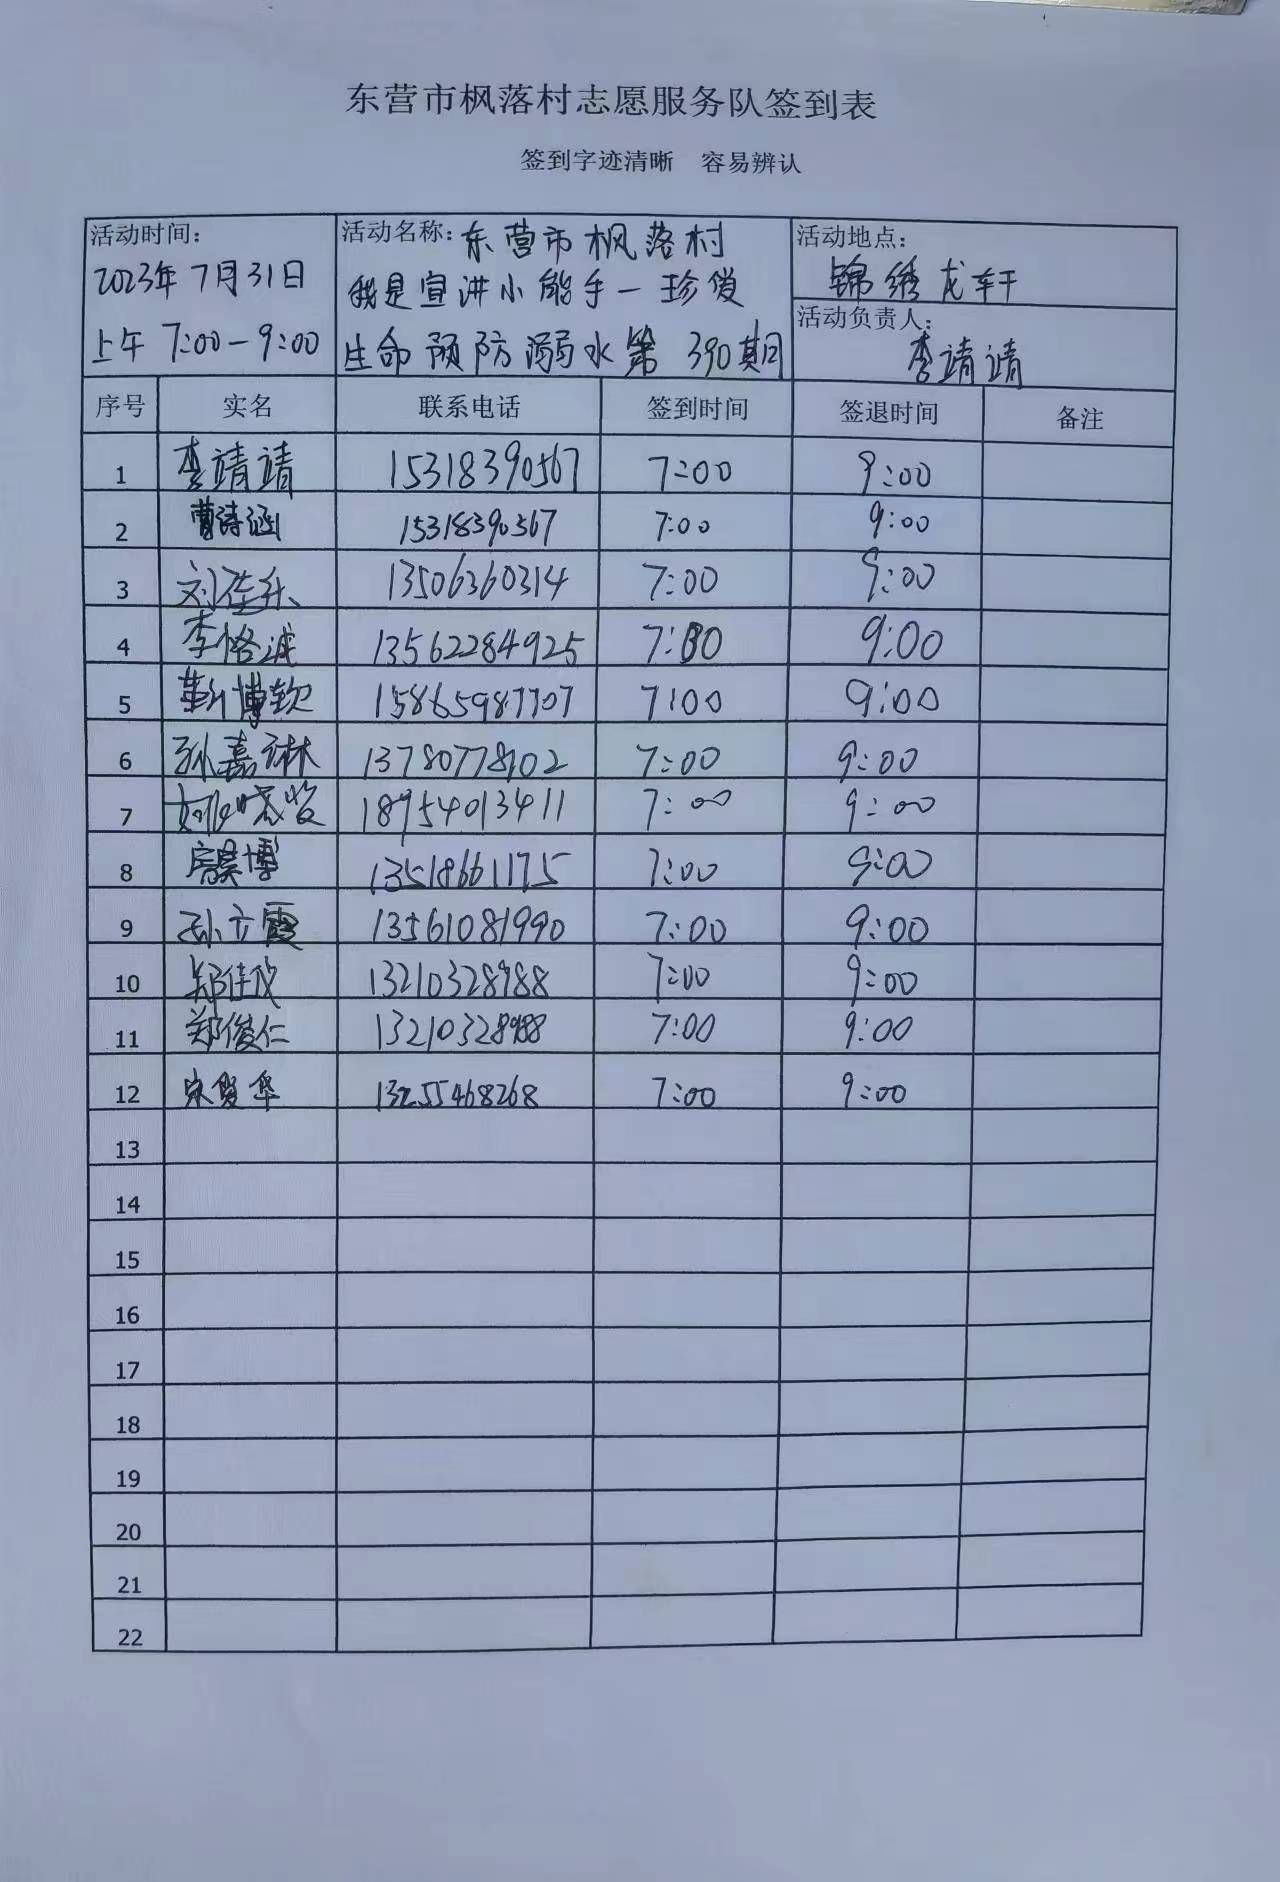 东营市枫落村志愿服务队签到表
签到字迹清晰 容易辨认
活动时间:
2023年7月31日
上午 7:00-9:00
活动名称: 东营市枫落村
我是宣讲小能手一珍俊
生命预防溺水第 390期
活动地点:
锦绣龙轩
活动负责人:
李靖靖
序号 实名 联系电话 签到时间 签退时间 备注
1 李靖靖 15318390567 7:00 9:00
2 曹诗涵 15318390567 7:00 9:00
3 刘佳乐 13506360314 7:00 9:00
4 李恪诚 13562284925 7:00 9:00
5 靳博钦 15865987707 7:00 9:00
6 孙嘉琳 13780778102 7:00 9:00
7 18954013411 7:00 9:00
8 房昊博 13518661175 7:00 9:00
9 孙立霞 13561081990 7:00 9:00
10 郑佳仪 13210328988 7:00 9:00
11 郑俊仁 13210328988 7:00 9:00
12 宋俊华 13255468268 7:00 9:00
13
14
15
16
17
18
19
20
21
22